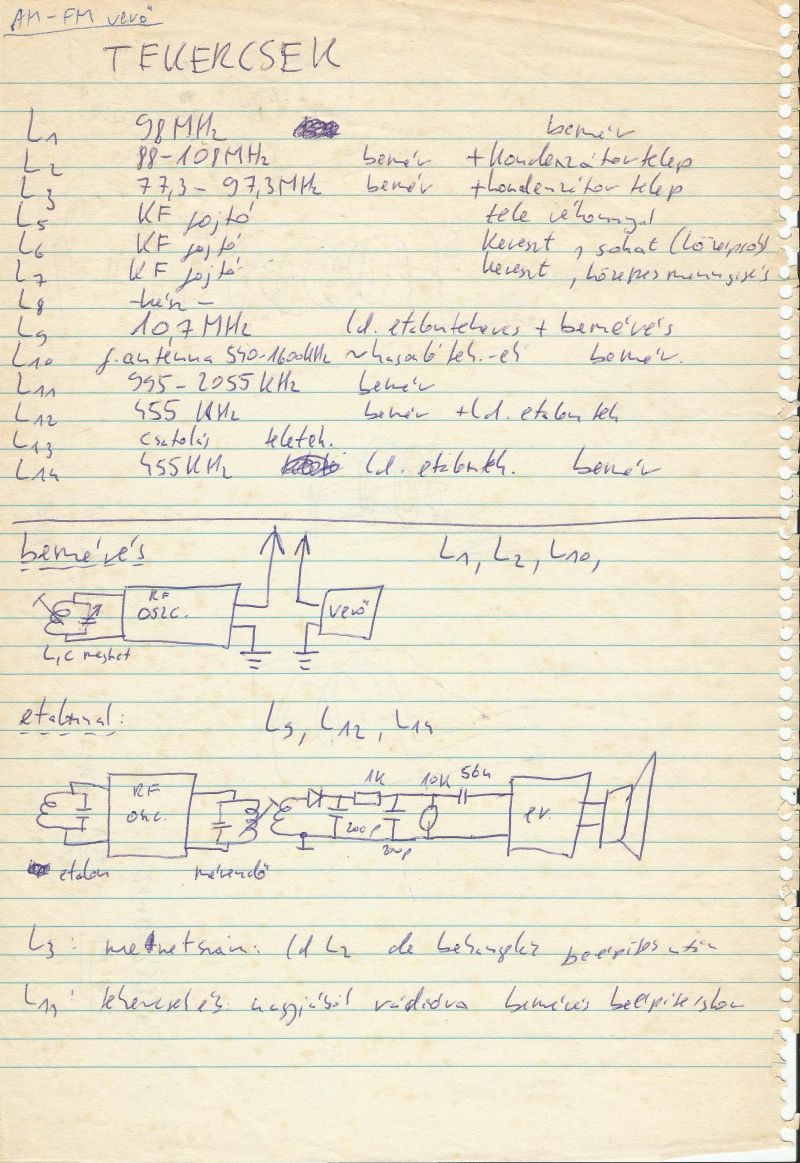 AM-FM vevő
TEKERCSEK
L1 98MHz bemér
L2 88-108MHz bemér +kondenzátor telep
L3 77,3-97,3MHz bemér +kondenzátor telep
L5 KF fojtó tele vékonnyal
L6 KF fojtó kereszt, sokat
L7 KF fojtó kereszt, közepes mennyiség
L8 -kész-
L9 10,7MHz ld. etalontekercs + bemérés
L10 f.antenna 540-1600kHz ~hasonló tek.-el bemér.
L11 995-2055KHz bemér
L12 455 KHz bemér +ld. etalon tek
L13 csatolás teletek.
L14 455KHz ld. etalontek. bemér
bemérés L1, L2, L10,
RF
OSZC. vevő
L,C
etalonnal: L9, L12, L14
1K 10K 56n
RF
200p
200p
etalon mérendő
L3: ld L2 de behangolás beépítés után
L11: tekercselés nagyjából rádióra bemérés